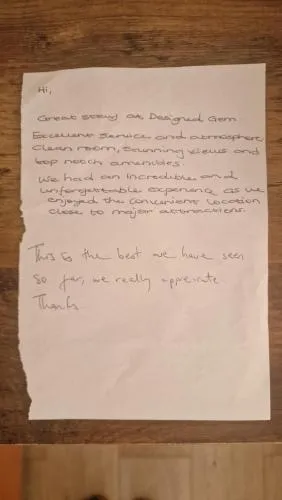 Hi,
Great stay at Designed Gem
Excellent service and atmosphere,
clean room, stunning views and
top notch amenities.
We had an incredible and
unforgettable experience as we
enjoyed the convenient location
close to major attractions.
This is the best we have seen
so far, we really appreicate
Thanks